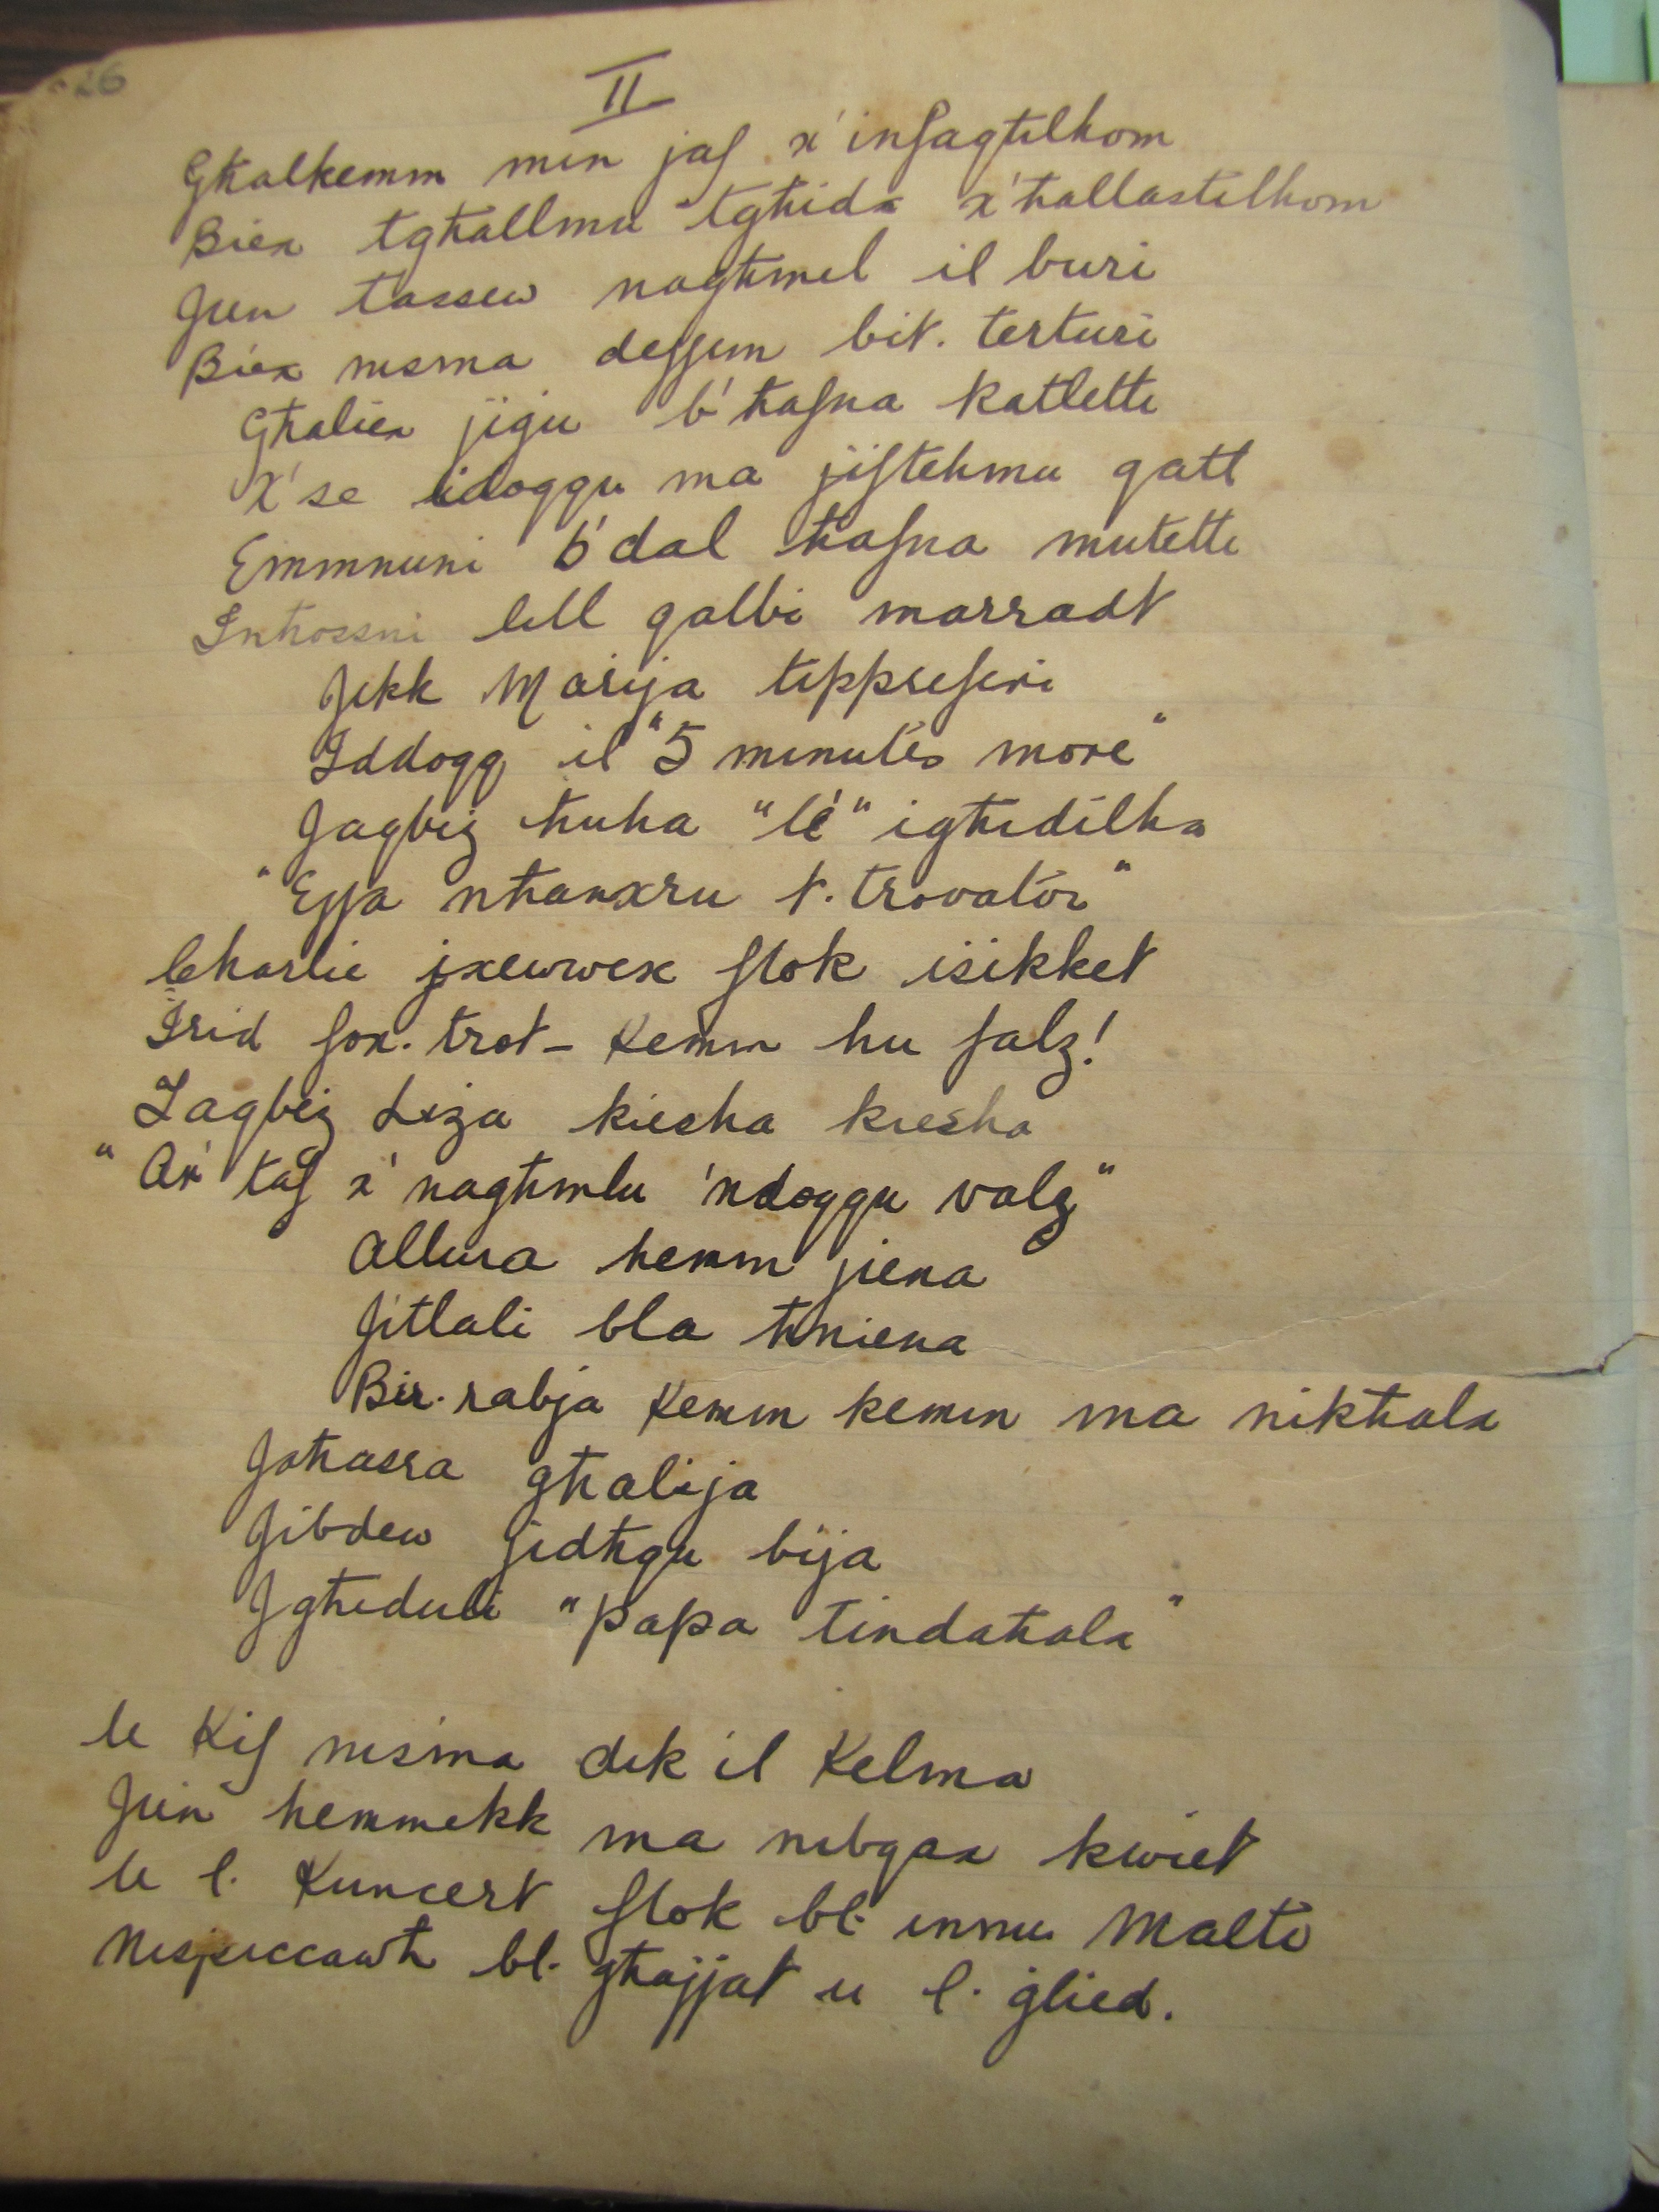 26
II
Għalkemm min jaf x'infaqtilkom
Biex tgħallmu tgħidx x'ħallastilkom
Jien tassew nagħmel il buri
Biex nisma dejjem bit. terturi
Għaliex jiġu b'ħafna katletti
X'se idoqqu ma jiftehmu qatt
Emmnuni b'dal ħafna mutetti
Inħossni lill qalbi marradt
Jekk Marija tippreferi
Iddoqq il "5 minutes more"
Jaqbiz ħuha "lé" igħidilha
"Ejja nħanxru t. trovatór"
Charlie jxewwex flok isikket
Irid fox. trot - kemm hu falz!
Taqbiż Liza kiesħa kiesħa
"Ax' taf x' nagħmlu 'ndoqqu valz"
Allura hemm jiena
Jitlali bla ħniena
Bir. rabja kemm kemm ma niktħalx
Jaħasra għalija
Jibdew jidħqu bija
Jgħiduli "papa tindaħalx"
U kif nisma dik il kelma
Jien hemmekk ma nibqax kwiet
U l. kuncert flok bl. innu Malti
Nispiccawh bl. għajjat u l. ġlied.